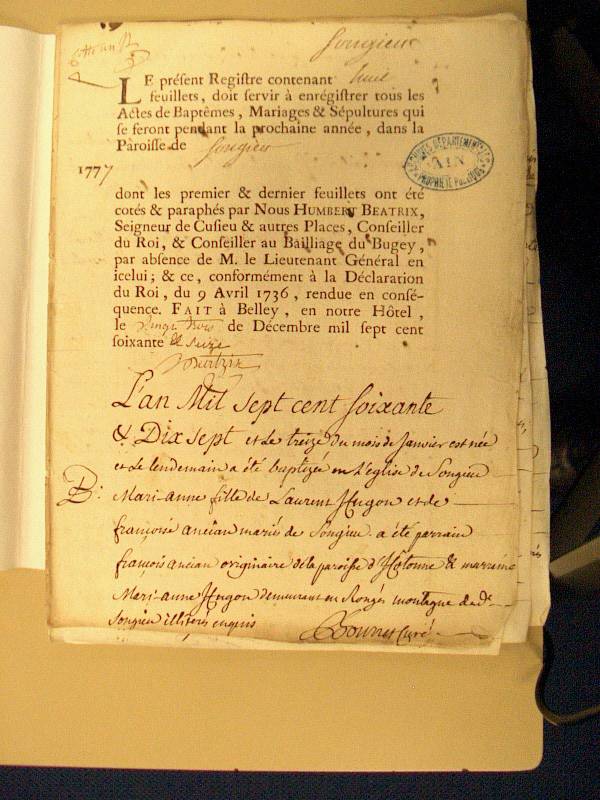 Songieu
LE présent Registre contenant huit
feuillets, doit servir à enrégistrer tous les
Actes de Baptêmes, Mariages & Sépultures qui
se feront pendant la prochaine année, dans la
Paroisse de Songieu
1777
ARCHIVES DÉPARTEMENTALES
AIN
PROPRIÉTÉ PUBLIQUE
dont les premier & dernier feuillets ont été
cotés & paraphés par Nous HUMBERT BEATRIX,
Seigneur de Cusieu & autres Places, Conseiller
du Roi, & Conseiller au Bailliage du Bugey,
par absence de M. le Lieutenant Général en
icelui; & ce, conformément à la Déclaration
du Roi, du 9 Avril 1736, rendue en consé-
quence. FAIT à Belley, en notre Hôtel,
le vingt trois de Décembre mil sept cent
soixante & seize
L'an Mil sept cent soixante
& Dix sept et le treize du mois de Janvier est née
et le lendemain a été baptizée en L'eglise de Songieu
B: Mari-anne fille de Laurent Hugon et de
françoise ancian mariés de Songieu. a été parrain
françois ancian originaire de la paroisse d'Hotonne & marraine
Mari-anne Hugon demeurant en Rongés montagne dud.
Songieu illiterés enquis Bourret Curé.